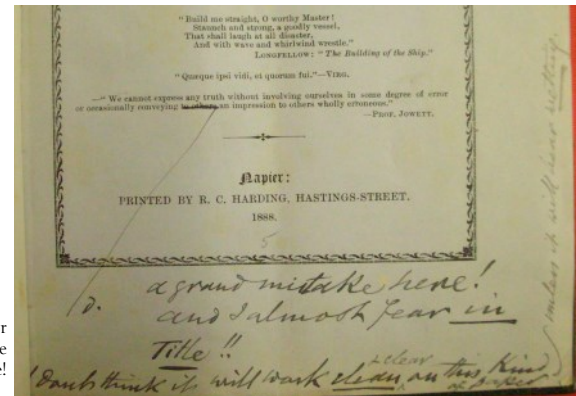 "Build me straight, O worthy Master!
Staunch and strong, a goodly vessel,
That shall laugh at all disaster,
And with wave and whirlwind wrestle."
LONGFELLOW: "The Building of the Ship."
"Quæque ipsi vidi, et quorum fui."—VIRG.
—"We cannot express any truth without involving ourselves in some degree of error
or occasionally conveying to others an impression to others wholly erroneous."
—PROF. JOWETT.
Napier:
PRINTED BY R. C. HARDING, HASTINGS-STREET.
1888.
5
d.
a grand mistake here!
and I almost fear in
Title!!
+ clear
I don't think it will work clean, on this kind
of paper
unless it will bear wetting.
r
e
e!